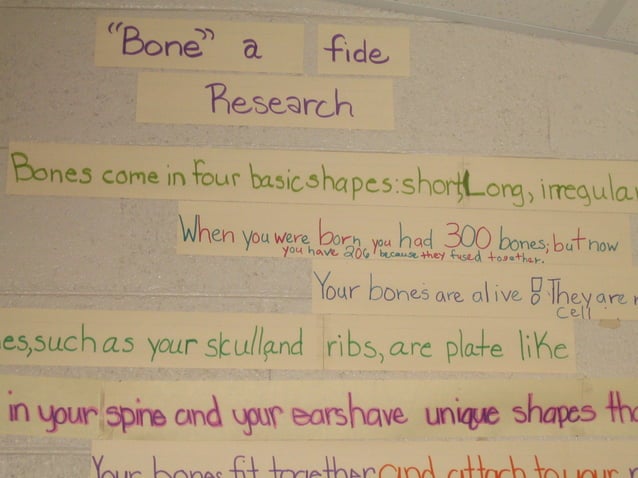 "Bone" a fide
Research
Bones come in four basic shapes: short, Long, irregular
When you were born you had 300 bones, but now
you have 206 because they fused together.
Your bones are alive! They are
cell
es, such as your skull and ribs, are plate like
in your spine and your ears have unique shapes tha
Your bones fit together and attach to your